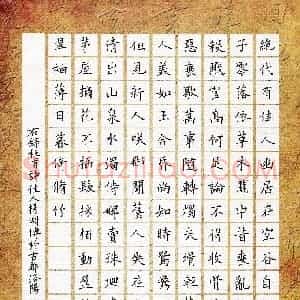 絕代有佳人幽居在空谷自
子零落依草木關中昔喪亂
殺戮官高何足論不得收骨
惡衰歇萬事隨轉燭夫婿輕
人美如玉合昏尚知時鴛鴦
但見新人咲那聞舊人哭在
清出山泉水濁侍婢賣珠回
茅屋摘花不插髮採柏動盈
翠袖薄日暮倚脩竹
右錄杜甫詩佳人 於古都洛陽